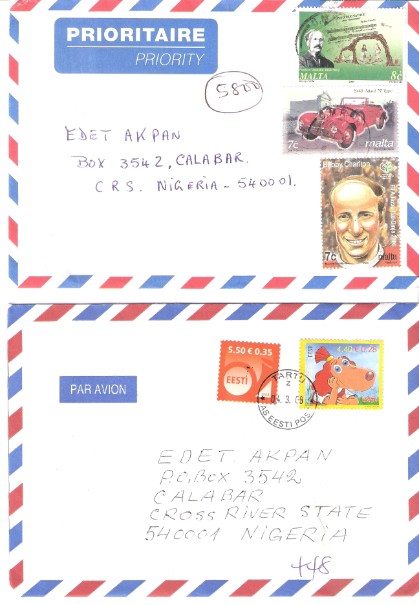 PRIORITAIRE
PRIORITY
MALTA 8c
5800
7c malta
EDET AKPAN
BOX 3542, CALABAR.
C.R.S. NIGERIA - 540001.
Bobby Charlton
7c malta
5.50 € 0.35
EESTI
4.40 € 0.28
EESTI
TARTU
2
04.3.08
AS EESTI POST
PAR AVION
EDET AKPAN
P.O.BOX 3542
CALABAR
CROSS RIVER STATE
540001 NIGERIA
448